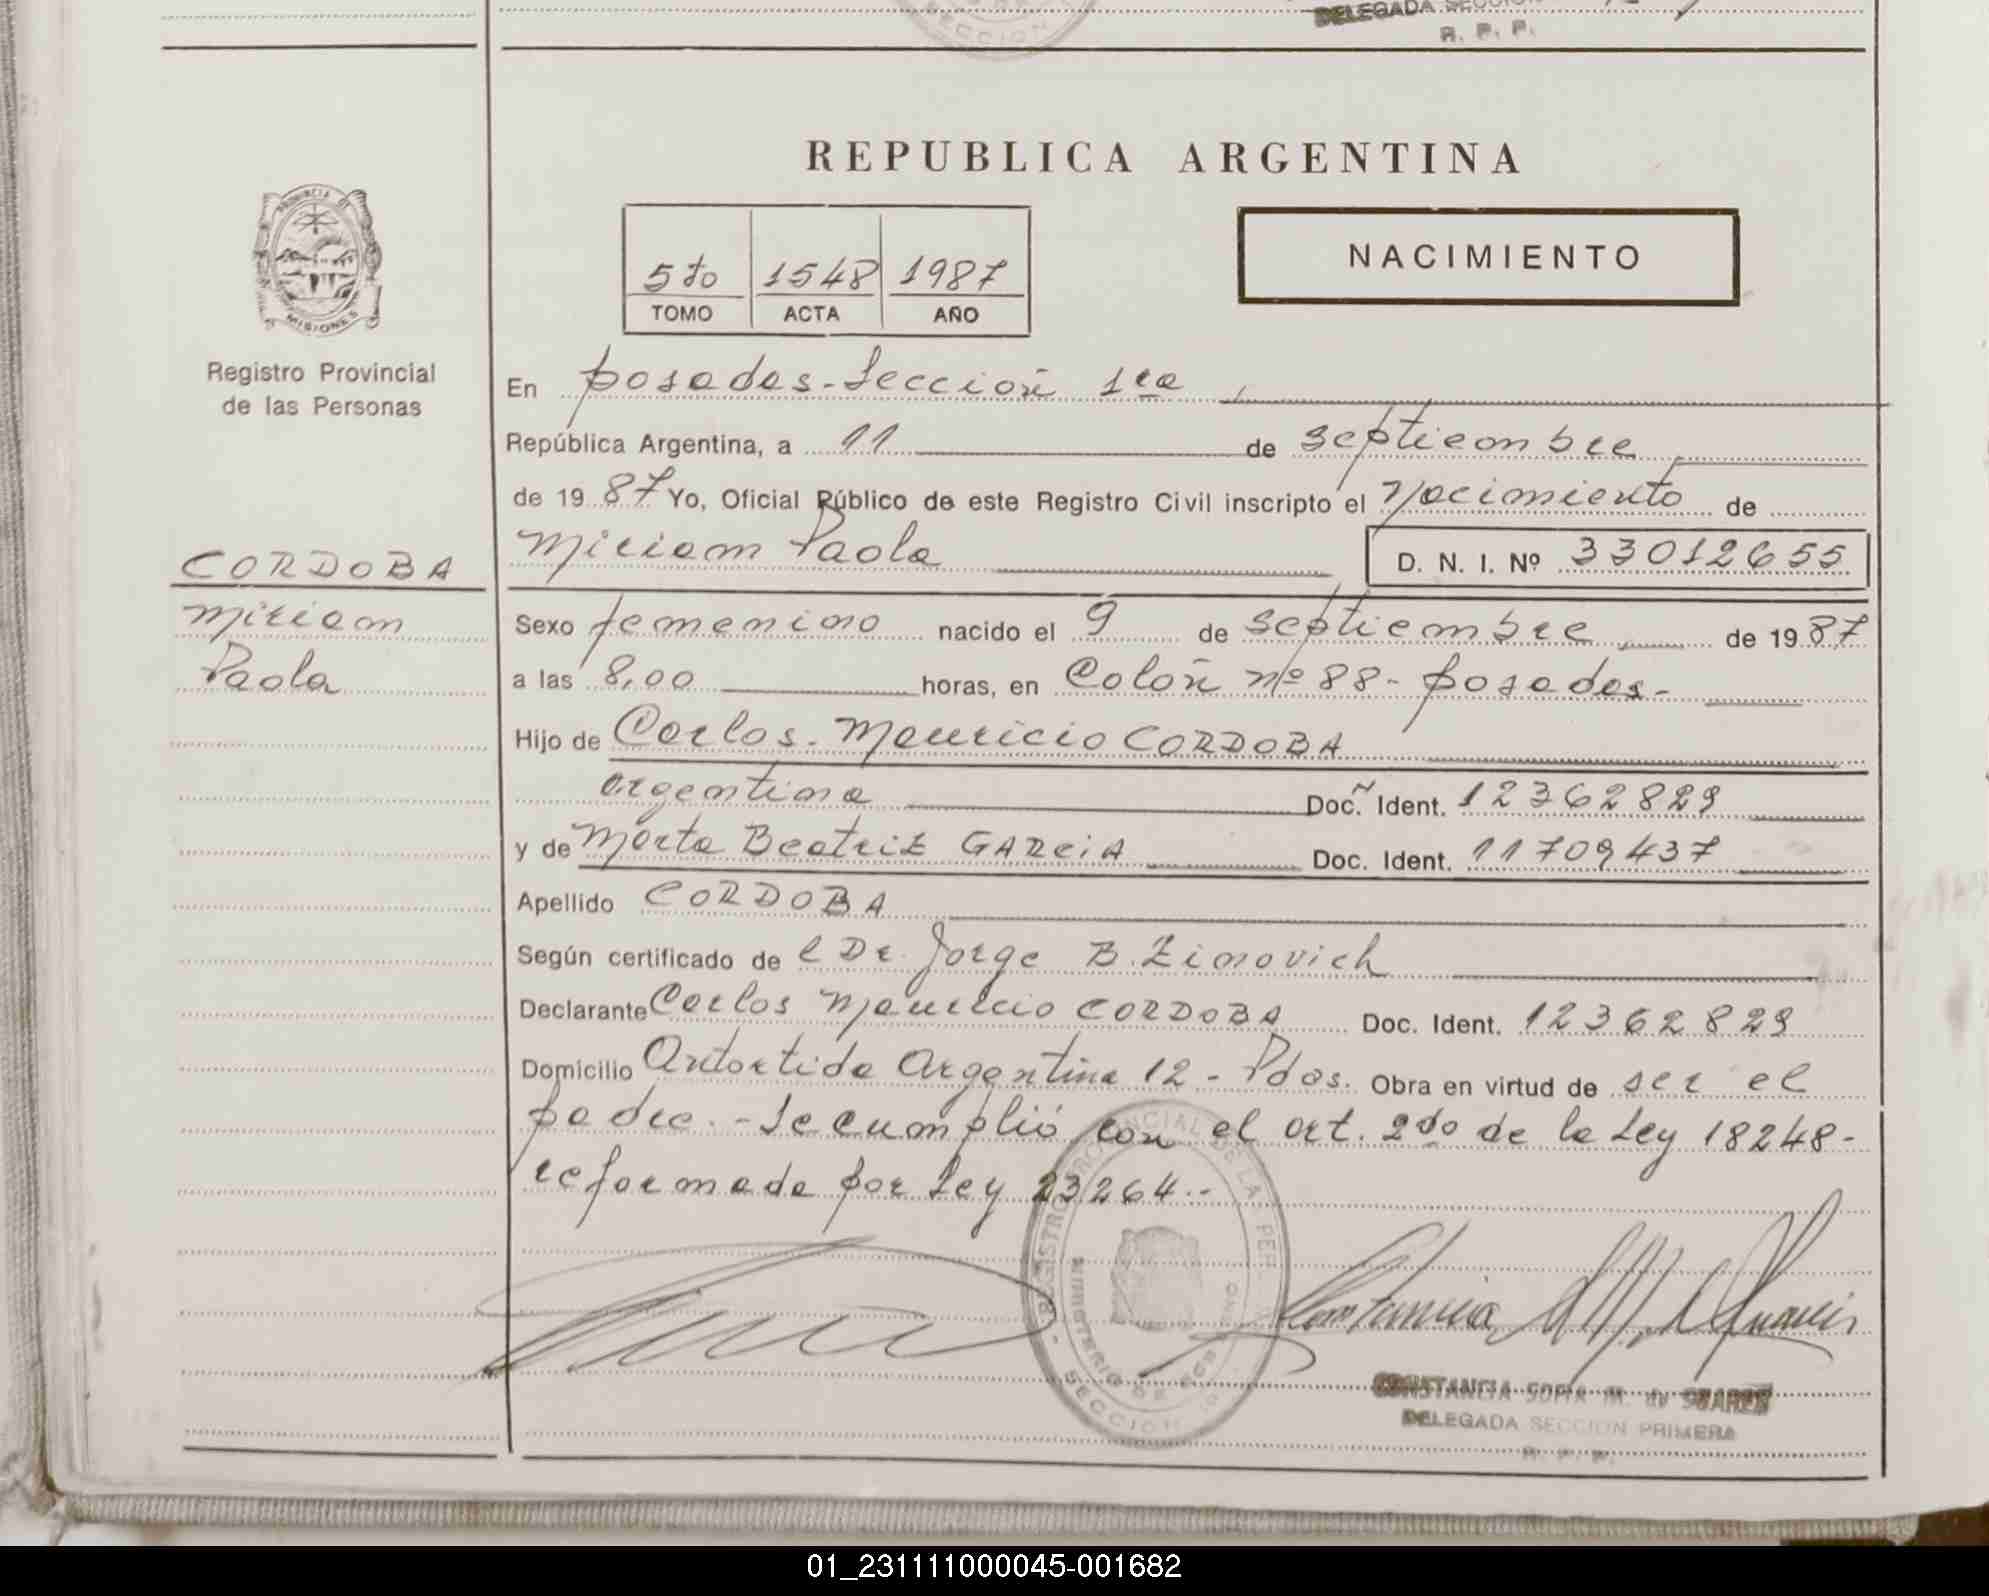 DELEGADA SECCION
R. P. P.
SECCION
REPUBLICA ARGENTINA
NACIMIENTO
5to 1548 1987
TOMO ACTA AÑO
PROVINCIA DE
MISIONES
Registro Provincial
de las Personas
En Posadas - Sección 1ra
República Argentina, a 11 de septiembre
de 1987 Yo, Oficial Público de este Registro Civil inscripto el Nacimiento de
Miriam Paola D. N. I. Nº 33012655
CORDOBA
Miriam
Paola
Sexo femenino nacido el 9 de septiembre de 1987
a las 8,00 horas, en Colón nº 88 - Posadas-
Hijo de Carlos Mauricio CORDOBA
argentina Doc. Ident. 12362829
y de Marta Beatriz GARCIA Doc. Ident. 11709437
Apellido CORDOBA
Según certificado de l Dr. Jorge B. Zinovich
Declarante Carlos Mauricio CORDOBA Doc. Ident. 12362829
Domicilio Antartida Argentina 12 - Pdas. Obra en virtud de ser el
padre. - Se cumplió con el art. 2do de la Ley 18248-
reformada por Ley 23264.-
REGISTRO PROVINCIAL DE LA PER
MINISTERIO DE GOBIERNO
SECCION 1a
CONSTANCIA SOFIA M. de SUAREZ
DELEGADA SECCION PRIMERA
R. P. P.
01_231111000045-001682